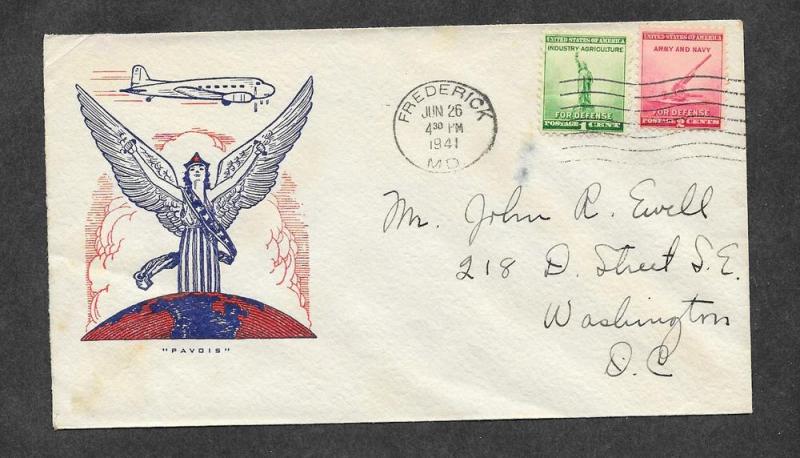 UNITED STATES OF AMERICA
INDUSTRY AGRICULTURE
FOR DEFENSE
POSTAGE 1 CENT
UNITED STATES OF AMERICA
ARMY AND NAVY
FOR DEFENSE
POSTAGE 2 CENTS
FREDERICK
JUN 26
4 30 PM
1941
MD.
Mr. John R. Ewell
218 D. Street S.E.
Washington
D.C
"PAVOIS"